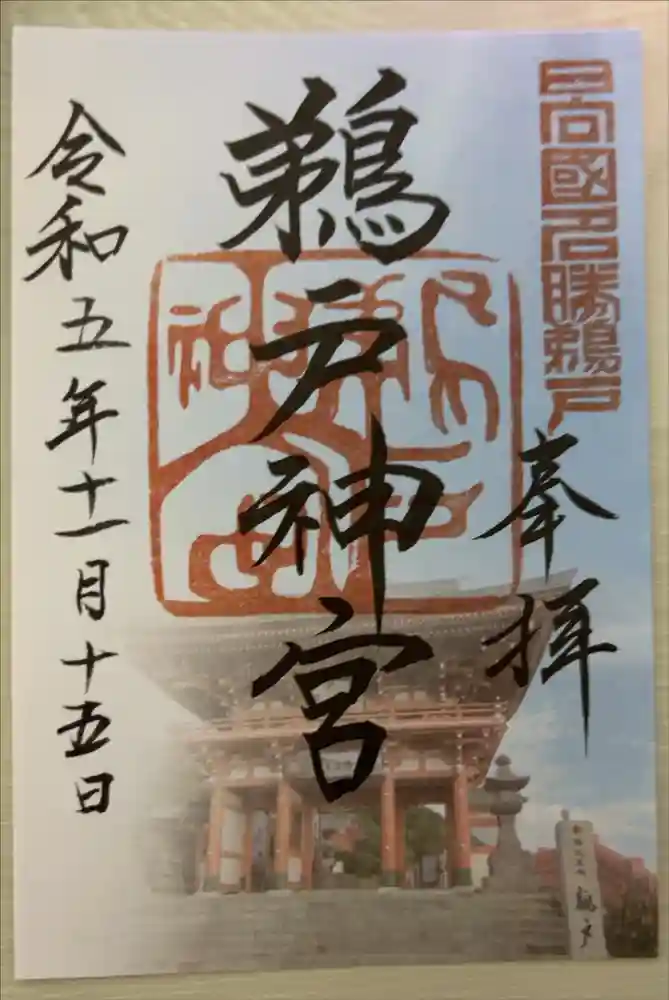 日向國名勝鵜戸
奉拝
鵜戸神宮
令和五年十一月十五日
鵜戸